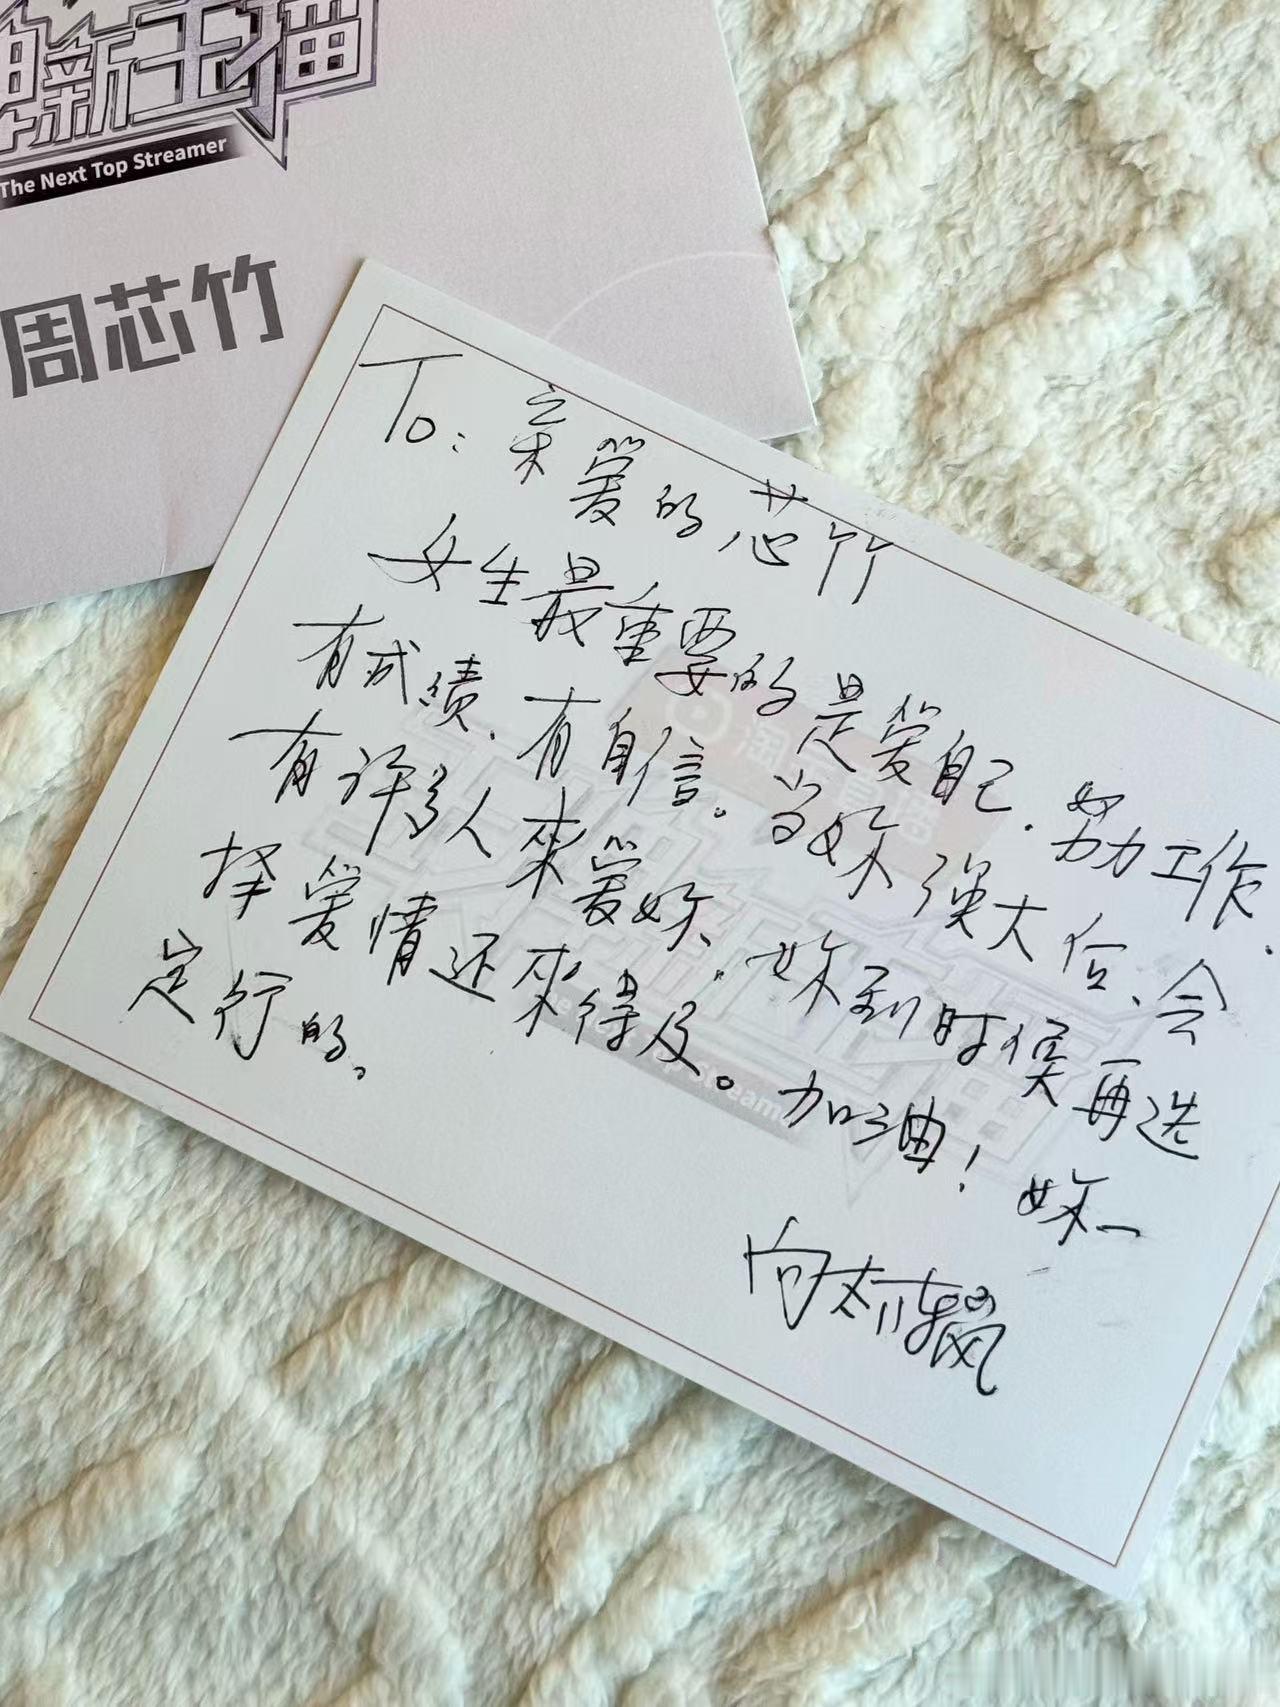 新主播
The Next Top Streamer
周芯竹
To: 亲爱的芯竹
女生最重要的是爱自己.努力工作.
有成绩.有自信。当妳强大后、会
有许多人來爱妳.妳到时候再选
择爱情还來得及。加油！妳一
定行的。
向太